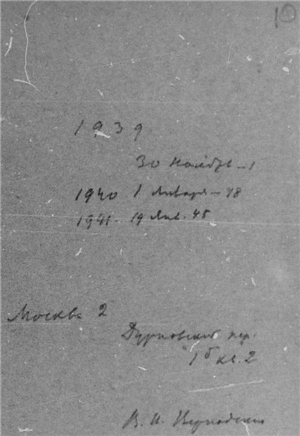 10
1939
30 Ноябрь – 1
1940 1 Января – 48
1941. 19 Янв. 45
Москва 2
Дурновский пер.
1б кв. 2
В. И. Вернадский